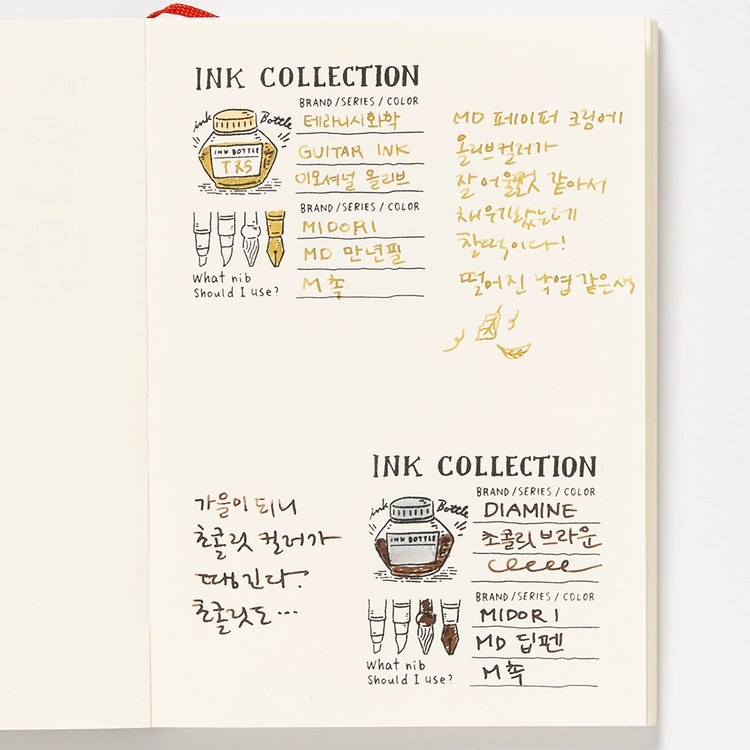 INK COLLECTION
BRAND/SERIES/COLOR
ink Bottle
테라니시화학
INK BOTTLE
GUITAR INK
이모셔널 올리브
BRAND/SERIES/COLOR
MIDORI
MD 만년필
What nib
Should I use?
M촉
MD 페이퍼 크림에
올리브컬러가
잘 어울릴것 같아서
채워기봤는데
찰떡이다!
떨어진 낙엽 같은색
INK COLLECTION
BRAND/SERIES/COLOR
ink Bottle
DIAMINE
INK BOTTLE
초콜릿브라운
BRAND/SERIES/COLOR
MIDORI
MD 딥펜
What nib
Should I use?
M촉
가을이 되니
초콜릿 컬러가
땡긴다?
초콜릿도…